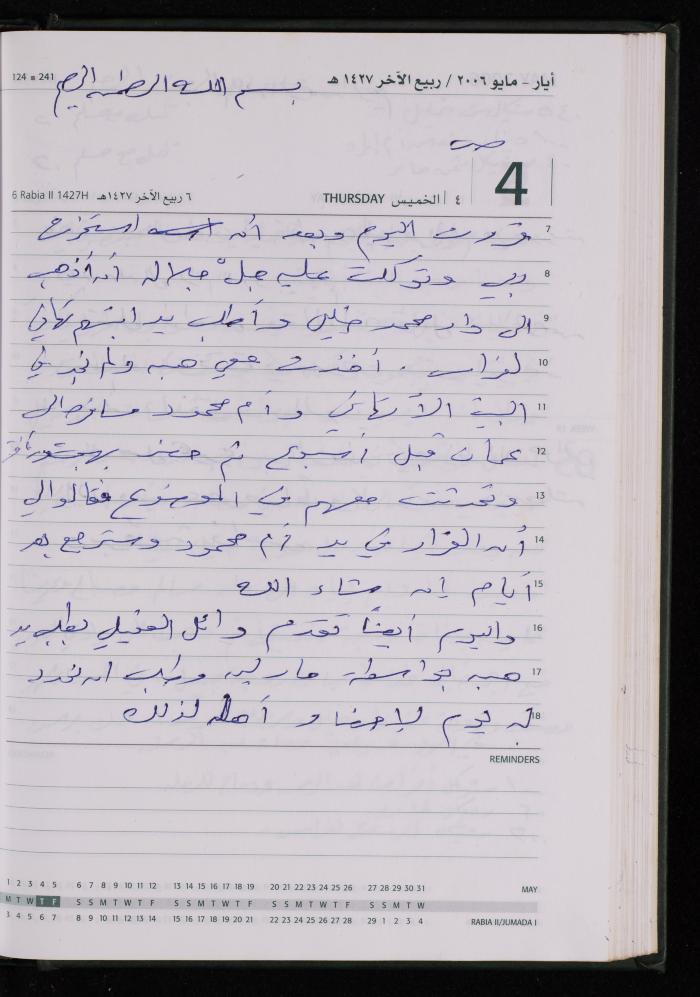 124 ■ 241
أيار - مايو ٢٠٠٦ / ربيع الآخر ١٤٢٧ هـ
بسم الله الرحمن الرحيم
4
6 Rabia II 1427H ٦ ربيع الآخر ١٤٢٧هـ THURSDAY الخميس ٤
7 قررت اليوم وبعد أن استخرت
8 ربي وتوكلت عليه جلّ جلاله أن أذهب
9 الى دار محمد خليل وأطلب يد ابنتهم تهاني
10 لفراس . أخذت معي هبه ولم نجد في
11 البيت الا تهاني وأم محمود مسافره الى
12 عمان قبل أسبوع ثم
13 وتحدثت معهم في الموضوع فقالوا لي
14 أن القرار في يد أم محمود وسترجع بعد
15 أيام إن شاء الله
16 واليوم أيضاً تقدم وائل يطلب يد
17 هبه بواسطة وطلب ان نحدد
18 له يوم لإحضار أهله لذلك
REMINDERS
1 2 3 4 5 6 7 8 9 10 11 12 13 14 15 16 17 18 19 20 21 22 23 24 25 26 27 28 29 30 31 MAY
M T W T F S S M T W T F S S M T W T F S S M T W T F S S M T W
3 4 5 6 7 8 9 10 11 12 13 14 15 16 17 18 19 20 21 22 23 24 25 26 27 28 29 1 2 3 4 RABIA II/JUMADA I